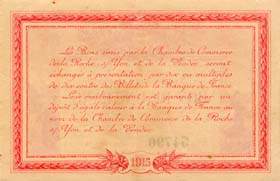 Les Bons émis par la Chambre de Commerce
de la Roche s/Yon et de la Vendée seront
échangés à présentation par dix ou multiples
de dix contre des Billets de la Banque de France
Leur remboursement est garanti par un
dépôt d'égale valeur à la Banque de France au
nom de la Chambre de Commerce de la Roche
s/Yon et de la Vendée.
1915